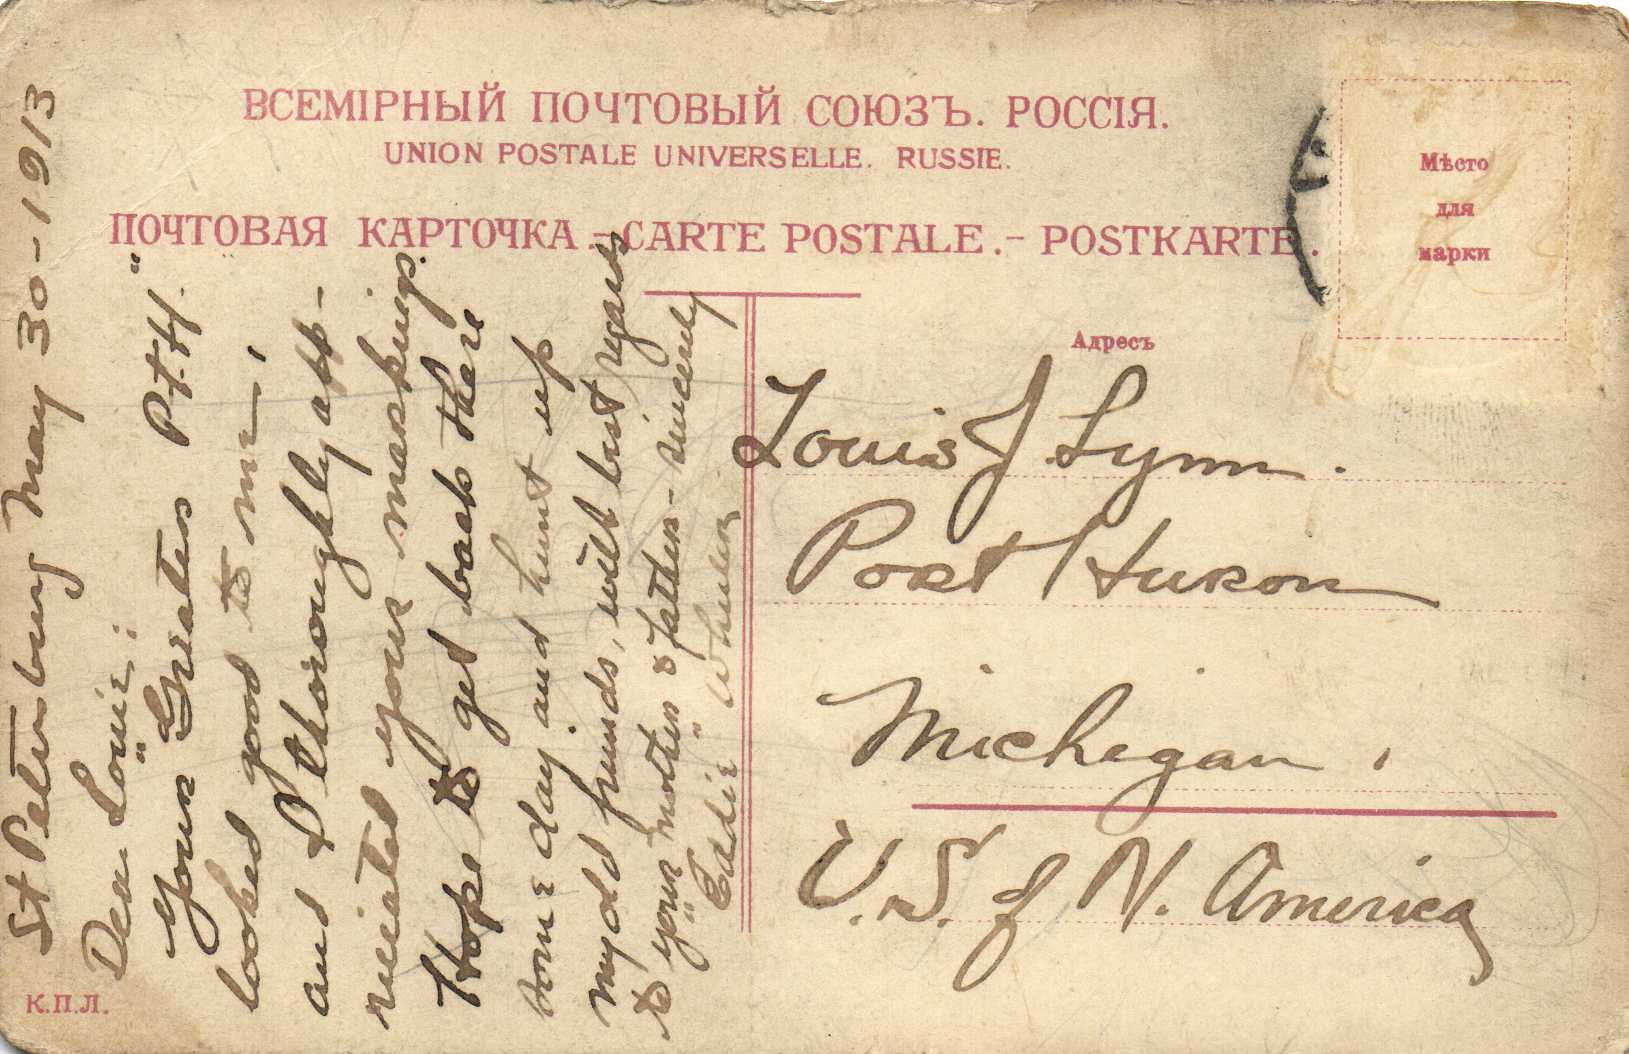 ВСЕМІРНЫЙ ПОЧТОВЫЙ СОЮЗЪ. РОССІЯ.
UNION POSTALE UNIVERSELLE. RUSSIE.
ПОЧТОВАЯ КАРТОЧКА.-CARTE POSTALE.-POSTKARTE.
Мѣсто
для
марки
Адресъ
St Petersburg May 30-1913
Dear Louie:
Your "Greater P.T.H."
looked good to me,
and I thoroughly app-
reciated your markship.
Hope to get back there
some day and hunt up
my old friends, with best regards
to your mother & father - sincerely
"Eddie"
Louis J Lynn.
Port Huron
Michigan,
U.S. of N. America
К.П.Л.